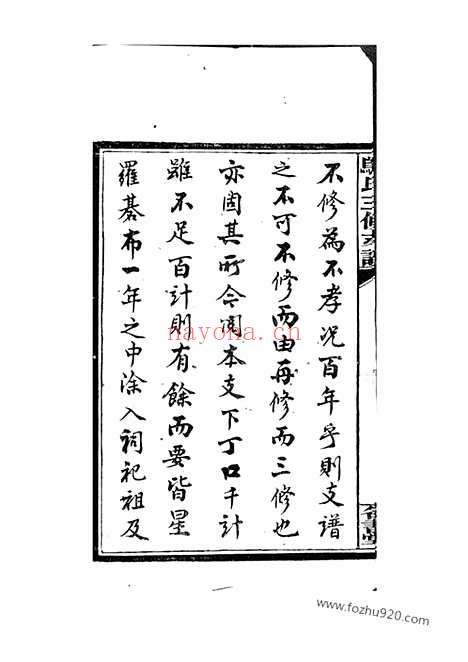 不修為不孝況百年乎則支譜
之不可不修而由再修而三修也
亦固其所今閱本支下丁口千計
雖不足百計則有餘而要皆星
羅碁布一年之中涂入祠祀祖及
氏三修支譜
nayona.cn
www.fozhu920.com